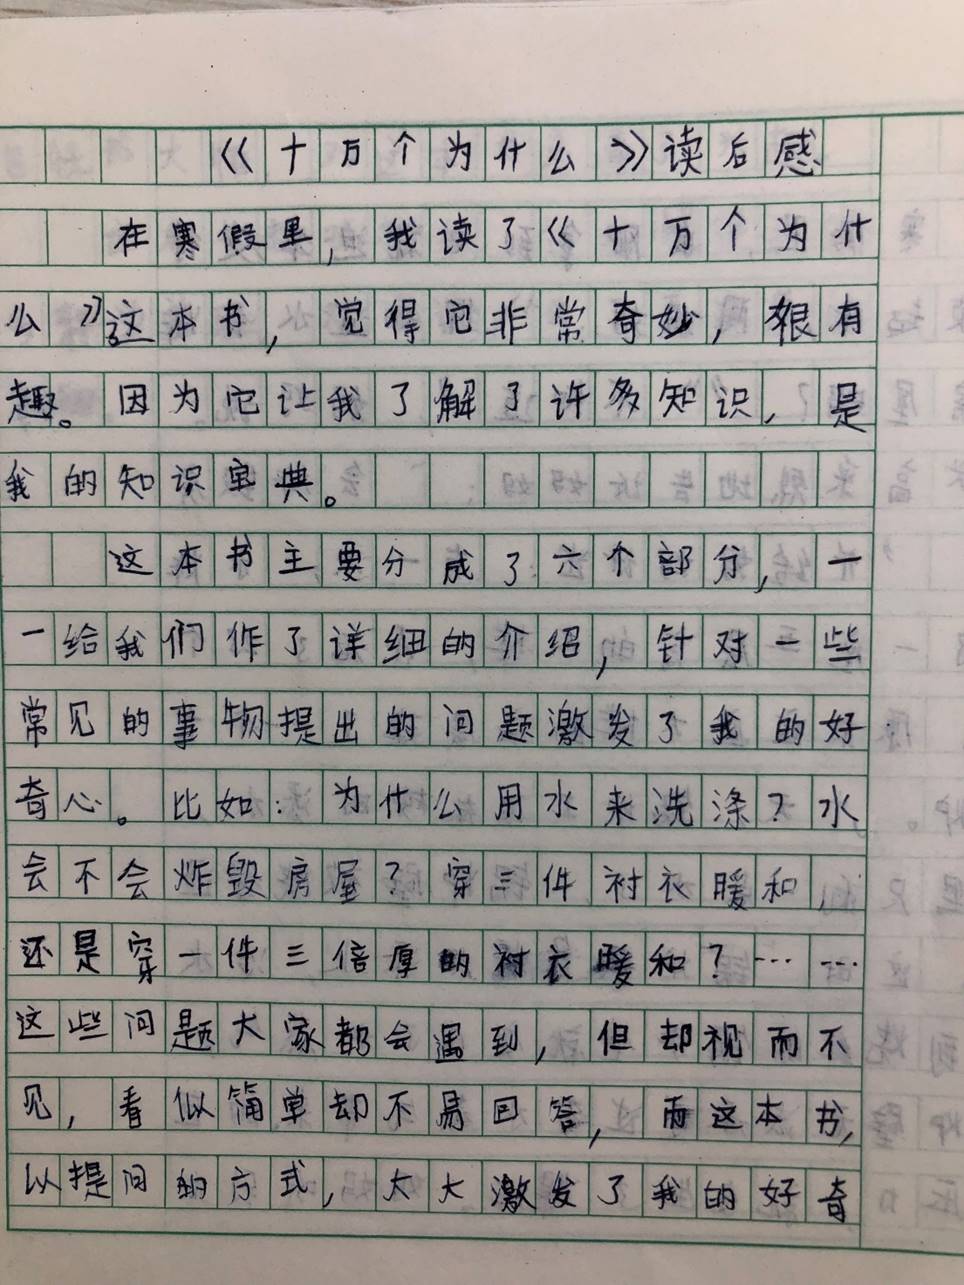 《十万个为什么》读后感
在寒假里，我读了《十万个为什
么》这本书，觉得它非常奇妙，很有
趣。因为它让我了解了许多知识，是
我的知识宝典。
这本书主要分成了六个部分，一
一给我们作了详细的介绍，针对一些
常见的事物提出的问题激发了我的好
奇心。比如：为什么用水来洗涤？水
会不会炸毁房屋？穿三件衬衣暖和，
还是穿一件三倍厚的衬衣暖和？……
这些问题大家都会遇到，但却视而不
见，看似简单却不易回答，而这本书，
以提问的方式，大大激发了我的好奇